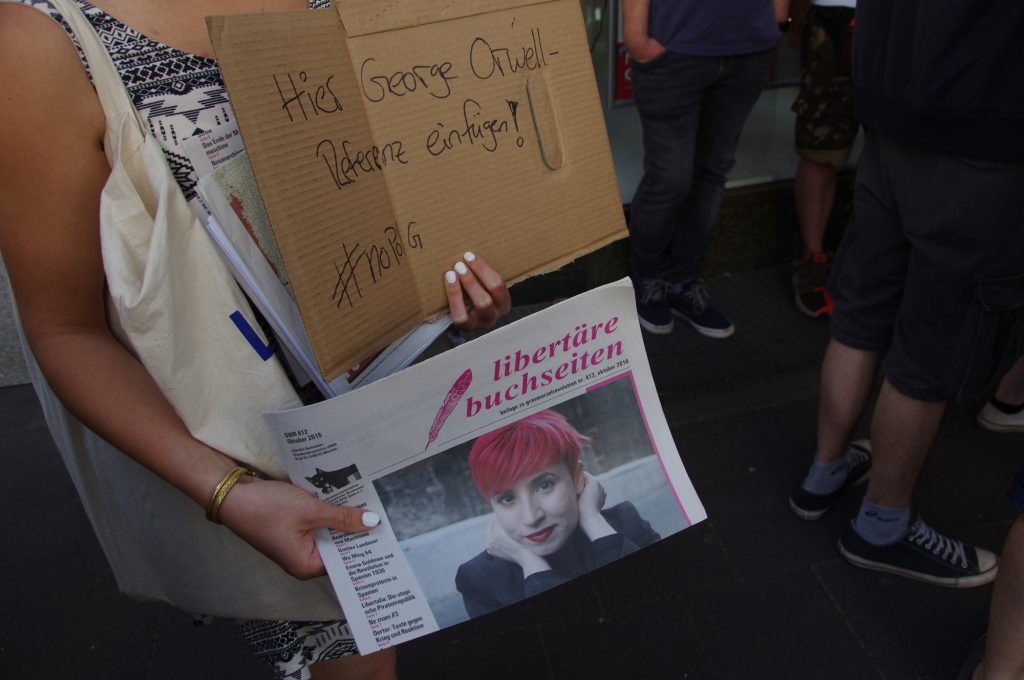 Hier George Orwell-
Referenz einfügen!
#noPolG
Das Ende der M
maschine
libertäre
buchseiten
beilage zu graswurzelrevolution nr. 412, oktober 2016
GWR 412
Oktober 2016
und Machismo
Gustav Landauer
Wu Ming 54
Emma Goldman und
die Revolution in
Spanien 1936
Krisenproteste in
Spanien
Libertalia: Die utopi-
sche Piratenrepublik
No znam #3
Darter: Texte gegen
Krieg und Reaktion